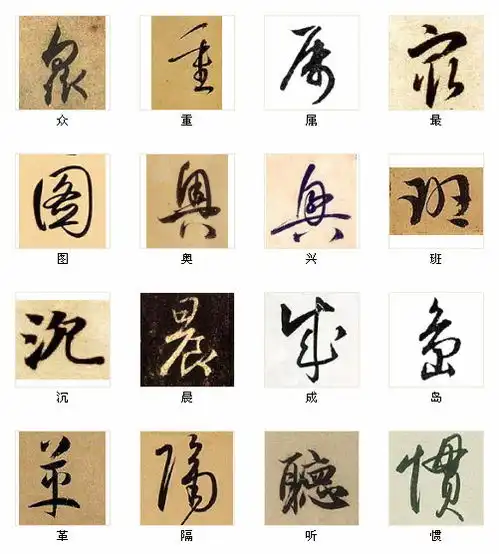 众 重 属 最
图 奥 兴 班
沉 晨 成 岛
革 隔 听 惯